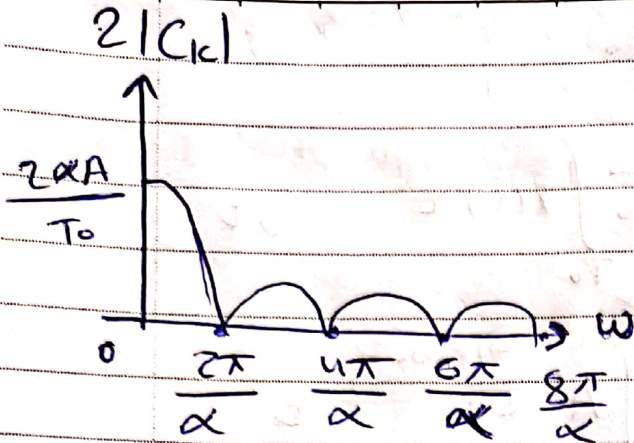 2|Ck|
2αA
T₀
ω
0
2π/α
4π/α
6π/α
8π/α